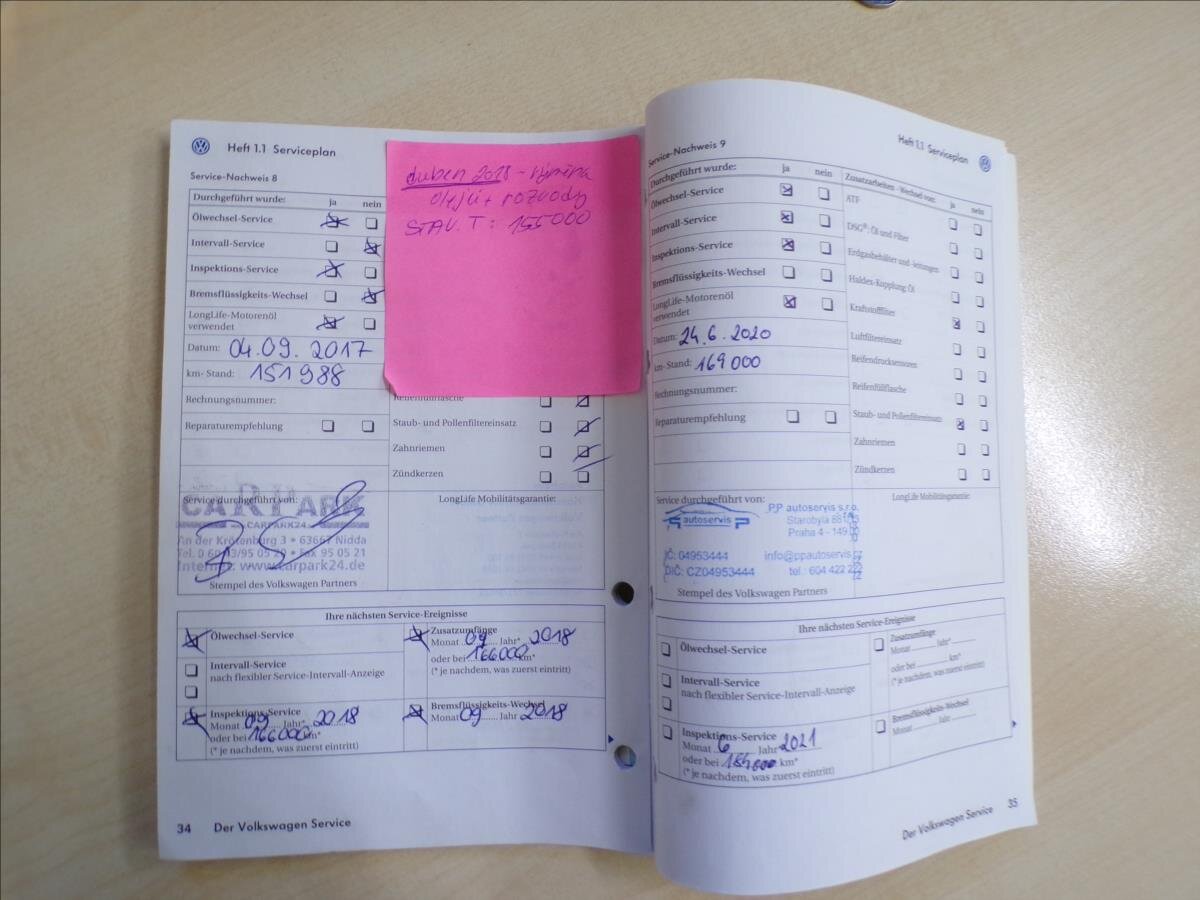 Heft 1.1 Serviceplan
Service-Nachweis 8
Durchgeführt wurde: ja nein
Ölwechsel-Service
Intervall-Service
Inspektions-Service
Bremsflüssigkeits-Wechsel
LongLife-Motorenöl
verwendet
Datum: 04.09.2017
km-Stand: 151988
Rechnungsnummer:
Reparaturempfehlung
duben 2018 - výměna
olejů + rozvody
STAV. T: 155000
Reifenfüllflasche
Staub- und Pollenfiltereinsatz
Zahnriemen
Zündkerzen
Service durchgeführt von:
CARPARK
CARPARK24
An der Krötenburg 3 • 63667 Nidda
Tel. 0 60 43/95 05 20 • Fax 95 05 21
Internet: www.carpark24.de
Stempel des Volkswagen Partners
LongLife Mobilitätsgarantie:
Ihre nächsten Service-Ereignisse
Ölwechsel-Service
Intervall-Service
nach flexibler Service-Intervall-Anzeige
Inspektions-Service
Monat 09 Jahr* 2018
oder bei 166000 km*
(* je nachdem, was zuerst eintritt)
Zusatzumfänge
Monat 09 Jahr* 2018
oder bei 166000 km*
(* je nachdem, was zuerst eintritt)
Bremsflüssigkeits-Wechsel
Monat 09 Jahr 2018
34 Der Volkswagen Service
Heft 1.1 Serviceplan
Service-Nachweis 9
Durchgeführt wurde: ja nein
Ölwechsel-Service
Intervall-Service
Inspektions-Service
Bremsflüssigkeits-Wechsel
LongLife-Motorenöl
verwendet
Datum: 24.6.2020
km-Stand: 169000
Rechnungsnummer:
Reparaturempfehlung
Zusatzarbeiten - Wechsel von: ja nein
ATF
DSG®: Öl und Filter
Erdgasbehälter und -leitungen
Haldex-Kupplung: Öl
Kraftstofffilter
Luftfiltereinsatz
Reifendrucksensoren
Reifenfüllflasche
Staub- und Pollenfiltereinsatz
Zahnriemen
Zündkerzen
Service durchgeführt von:
autoservis
PP autoservis s.r.o.
Starobylá
Praha 4 - 149 00
IČ: 04953444 info@ppautoservis.cz
DIČ: CZ04953444 tel.: 604 422 222
Stempel des Volkswagen Partners
LongLife Mobilitätsgarantie:
Ihre nächsten Service-Ereignisse
Ölwechsel-Service
Intervall-Service
nach flexibler Service-Intervall-Anzeige
Inspektions-Service
Monat 6 Jahr 2021
oder bei 184000 km*
(* je nachdem, was zuerst eintritt)
Zusatzumfänge
Monat Jahr*
oder bei km*
(* je nachdem, was zuerst eintritt)
Bremsflüssigkeits-Wechsel
Monat Jahr
Der Volkswagen Service 35